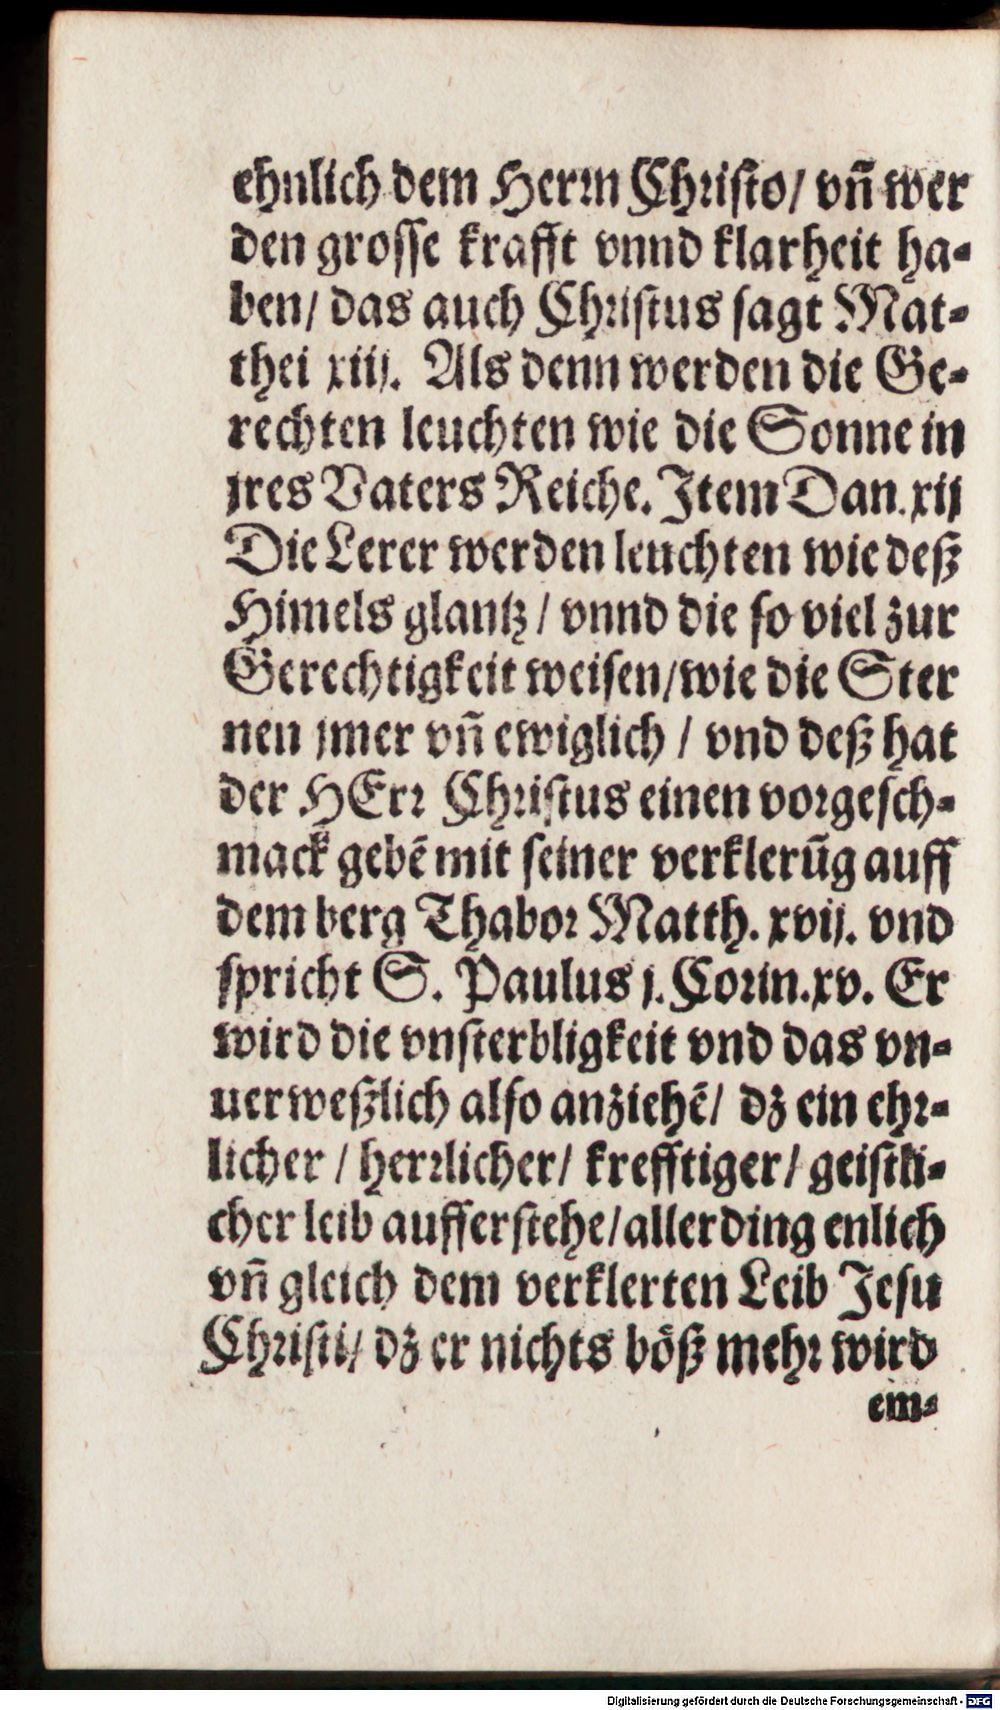 ehnlich dem Herrn Christo/ vnñ wer
den grosse krafft vnnd klarheit ha-
ben/ das auch Christus sagt Mat-
thei xiij. Als denn werden die Ge-
rechten leuchten wie die Sonne in
jres Vaters Reiche. Item Dan. xij
Die Lerer werden leuchten wie deß
Himels glantz / vnnd die so viel zur
Gerechtigkeit weisen/wie die Ster
nen jmer vñ ewiglich / vnd deß hat
der HErr Christus einen vorgesch-
mack gebẽ mit seiner verklerũg auff
dem berg Thabor Matth. xvij. vnd
spricht S. Paulus j. Corin. xv. Er
wird die vnsterbligkeit vnd das vn-
uerweßlich also anziehẽ/ dz ein ehr-
licher / herrlicher/ krefftiger/ geistli-
cher leib aufferstehe/allerding enlich
vñ gleich dem verklerten Leib Jesu
Christi/ dz er nichts böß mehr wird
ein-
Digitalisierung gefördert durch die Deutsche Forschungsgemeinschaft - DFG